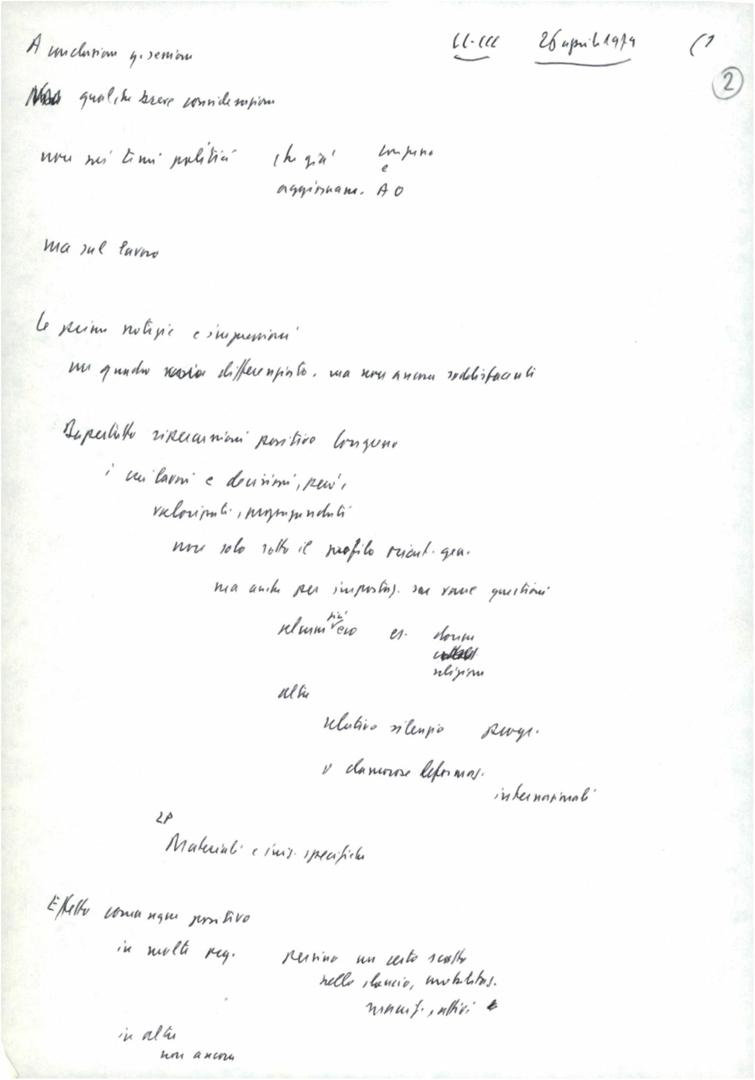 A conclusione q. sessione CC-CCC 26 aprile 1979 (1
2
qualche breve considerazione
non sui temi politici che già Longo
e
aggiornam. A O
ma sul lavoro
Le prime notizie e impressioni
un quadro differenziato. ma non ancora soddisfacenti
Dapertutto ripercussioni positive Congresso
i cui lavori e decisioni, però,
valorizzati, propagandati
non solo sotto il profilo orient. gen.
ma anche per impostaz. su varie questioni
alcuni più es. donne
religione
altre
relativo silenzio progr.
o clamorose deformaz.
internazionali
2P
Materiali e iniz. specifiche
Effetto comunque positivo
in molte reg. persino un certo scatto
nello slancio, mobilitaz.
manif., attivi
in altre
non ancora